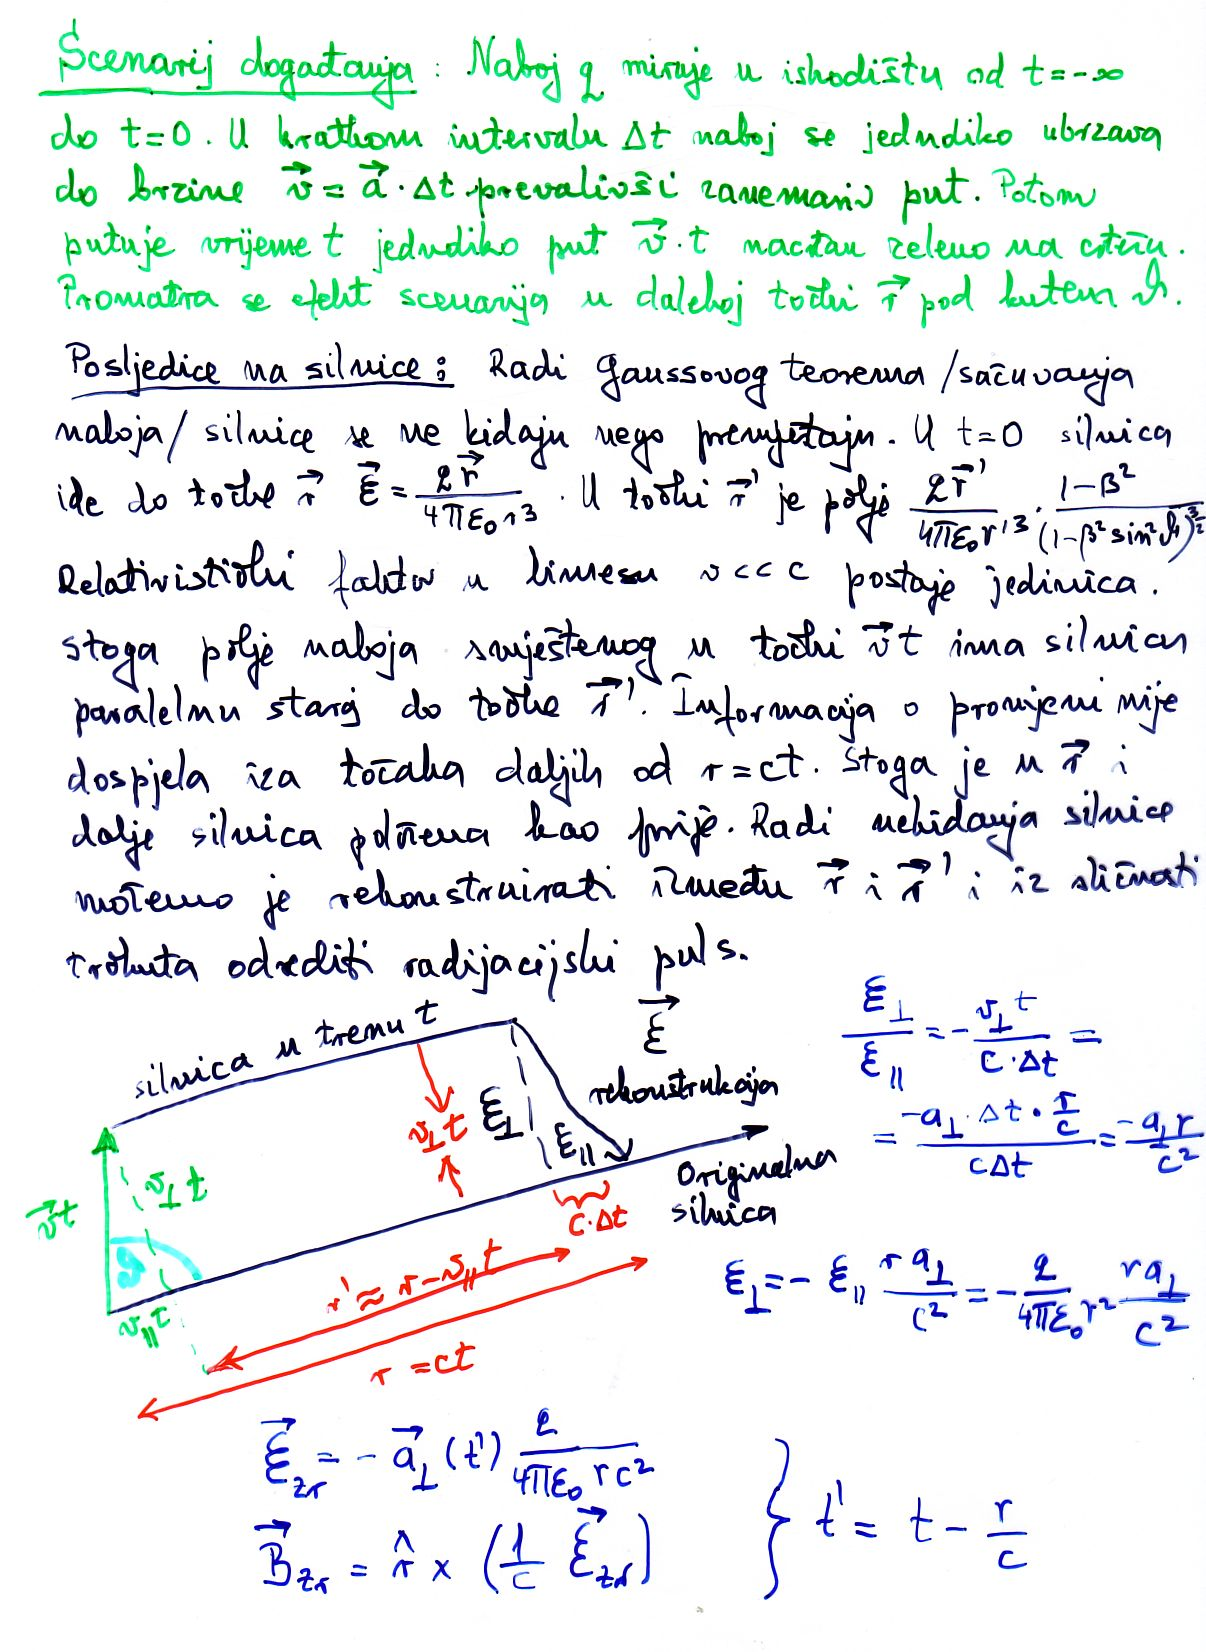 Scenarij događanja : Naboj q miruje u ishodištu od t=-∞
do t=0. U kratkom intervalu Δt naboj se jednoliko ubrzava
do brzine v⃗ = a⃗ · Δt prevalivši zanemariv put. Potom
putuje vrijeme t jednoliko put v⃗·t nacrtan zeleno na crtežu.
Promatra se efekt scenarija u dalekoj točki r⃗ pod kutem ϑ.
Posljedice na silnice : Radi Gaussovog teorema /sačuvanja
naboja/ silnice se ne kidaju nego premještaju. U t=0 silnica
ide do točke r⃗ ℰ⃗ = q r⃗ / 4πε₀ r³ . U točki r⃗' je polje q r⃗' / 4πε₀ r'³ · (1-β²) / (1-β² sin²ϑ)^(3/2)
Relativistički faktor u limesu v<<c postaje jedinica.
Stoga polje naboja smještenog u točki v⃗t ima silnicu
paralelnu staroj do točke r⃗'. Informacija o promjeni nije
dospjela iza točaka daljih od r=ct. Stoga je u r⃗ i
dalje silnica položena kao prije. Radi nekidanja silnice
možemo je rekonstruirati između r⃗ i r⃗' i iz sličnosti
trokuta odrediti radijacijski puls.
silnica u trenu t
ℰ⃗
rekonstrukcija
ℰ⊥
ℰ∥
v⊥t
Originalna
silnica
c·Δt
v⃗t
v⊥t
ϑ
v∥t
r' ≈ r - v∥t
r = ct
ℰ⊥ / ℰ∥ = - v⊥t / c·Δt =
= -a⊥·Δt·(r/c) / cΔt = -a⊥r / c²
ℰ⊥ = - ℰ∥ r a⊥ / c² = - q / 4πε₀r² · r a⊥ / c²
ℰ⃗zr = - a⃗⊥(t') q / 4πε₀ r c²
B⃗zr = r̂ × (1/c ℰ⃗zr)
} t' = t - r/c